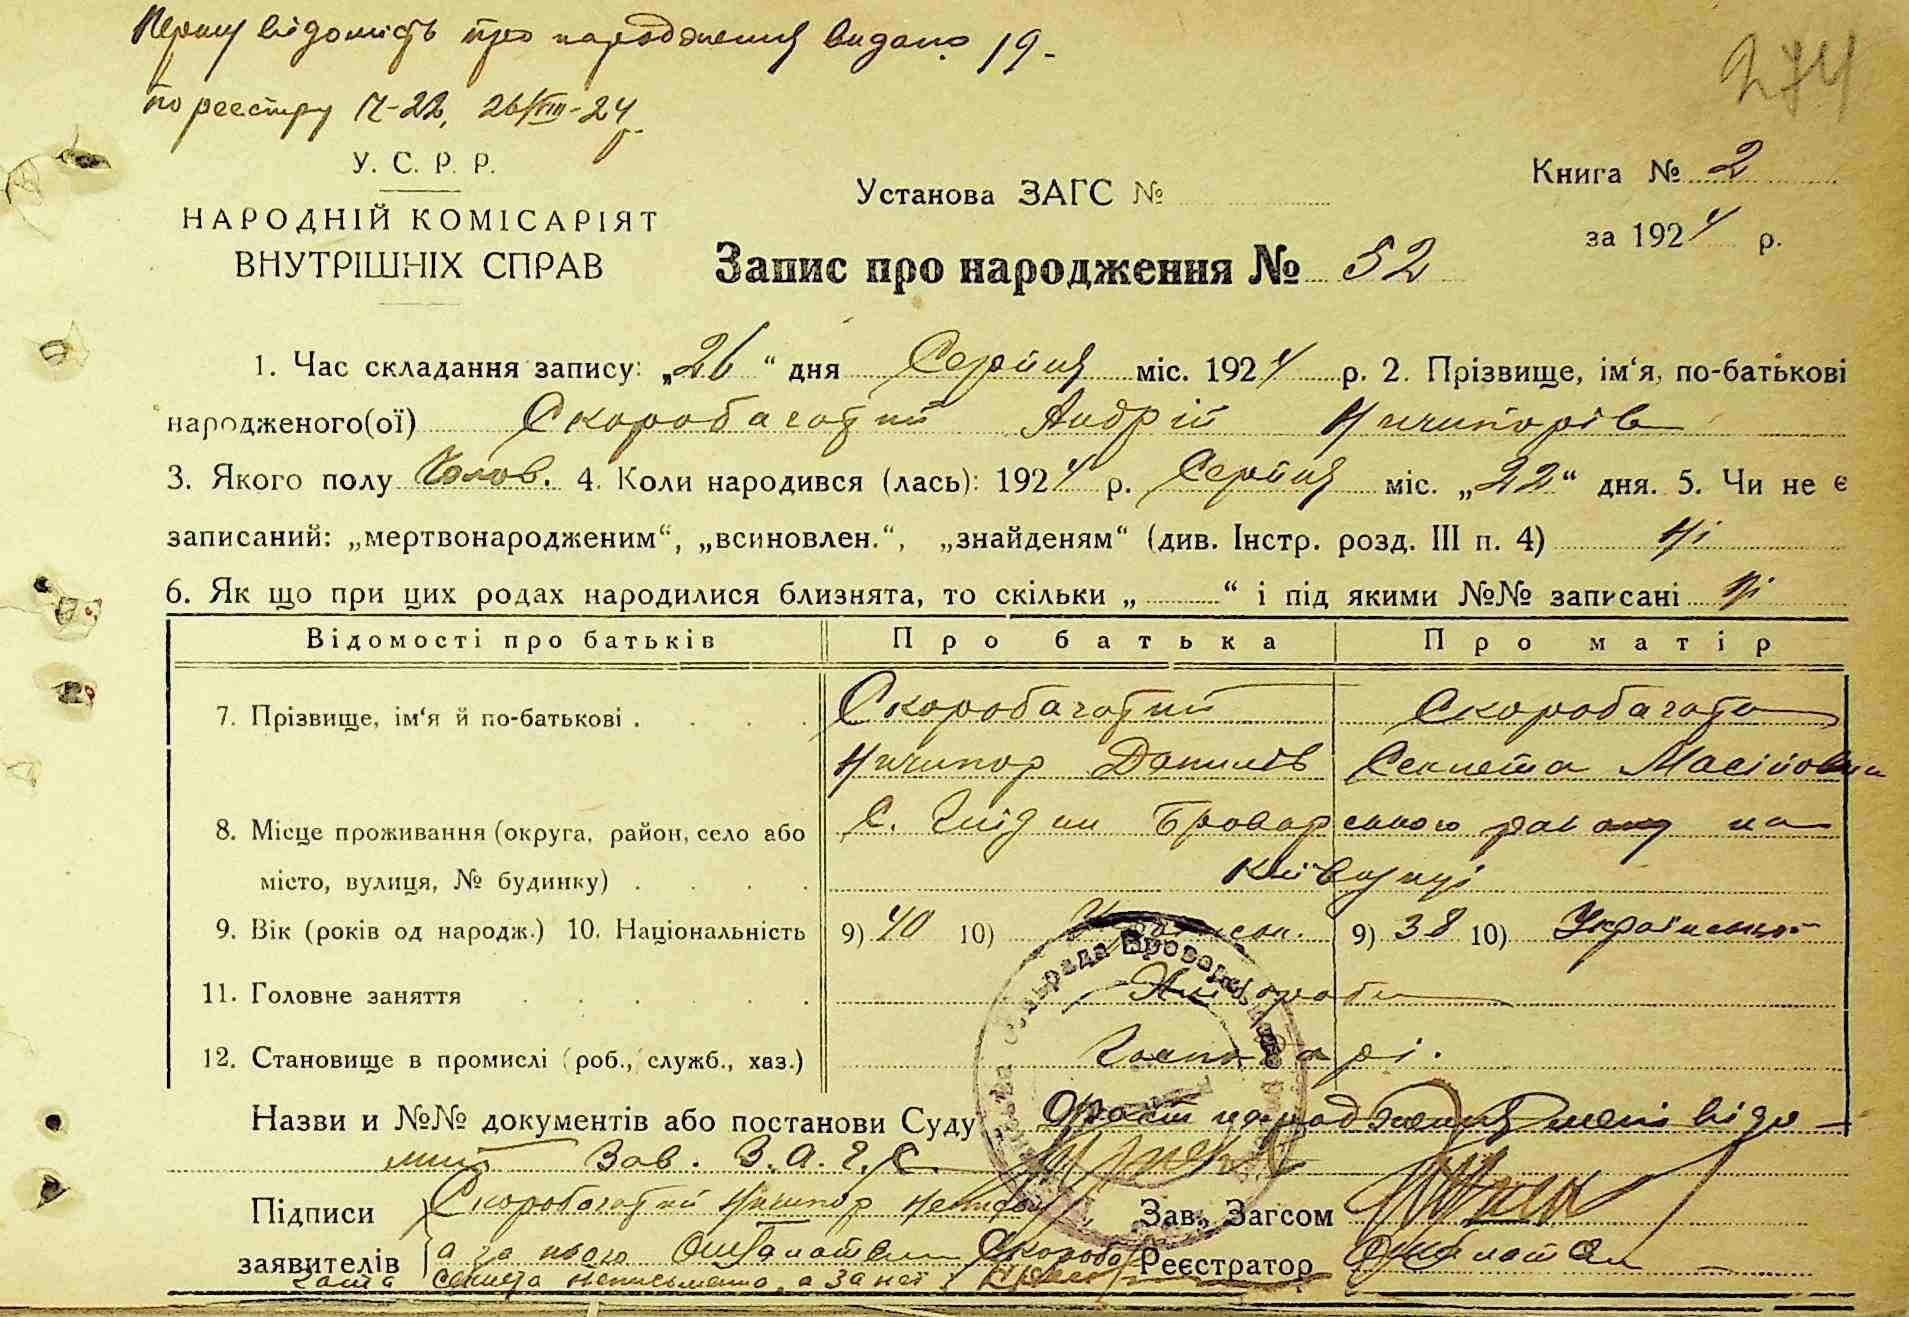 Першу відомість про народження видано 19-
по реєстру 26/VIII-24 р.
274
У. С. Р. Р.
НАРОДНІЙ КОМІСАРІЯТ
ВНУТРІШНІХ СПРАВ
Установа ЗАГС №
Книга № 2
за 1924 р.
Запис про народження № 52
1. Час складання запису: „26“ дня Серпня міс. 1924 р. 2. Прізвище, ім‘я, по-батькові
народженого(ої) Скоробагатий Андрій Ничипорів
3. Якого полу Чолов. 4. Коли народився (лась): 1924 р. Серпня міс. „22“ дня. 5. Чи не є
записаний: „мертвонародженим“, „всиновлен.“, „знайденям“ (див. Інстр. розд. III п. 4) ні
6. Як що при цих родах народилися близнята, то скільки „ “ і під якими №№ записані ні
Відомості про батьків Про батька Про матір
7. Прізвище, ім‘я й по-батькові . Скоробагатий Скоробагата
Ничипор Данилів Секлета
8. Місце проживання (округа, район, село або С. Броварського району на
місто, вулиця, № будинку) Київщині
9. Вік (років од народж.) 10. Національність 9) 40 10) 9) 38 10) Української
11. Головне заняття Хлібороби
12. Становище в промислі (роб., служб., хаз.) Господарі.
Назви и №№ документів або постанови Суду Факт народження мені відо-
мий Зав. З.А.Г.С.
Підписи Скоробагатий Ничипор Зав. Загсом
заявителів а за нього Скороба Реєстратор
гата неписьменна, а за неї